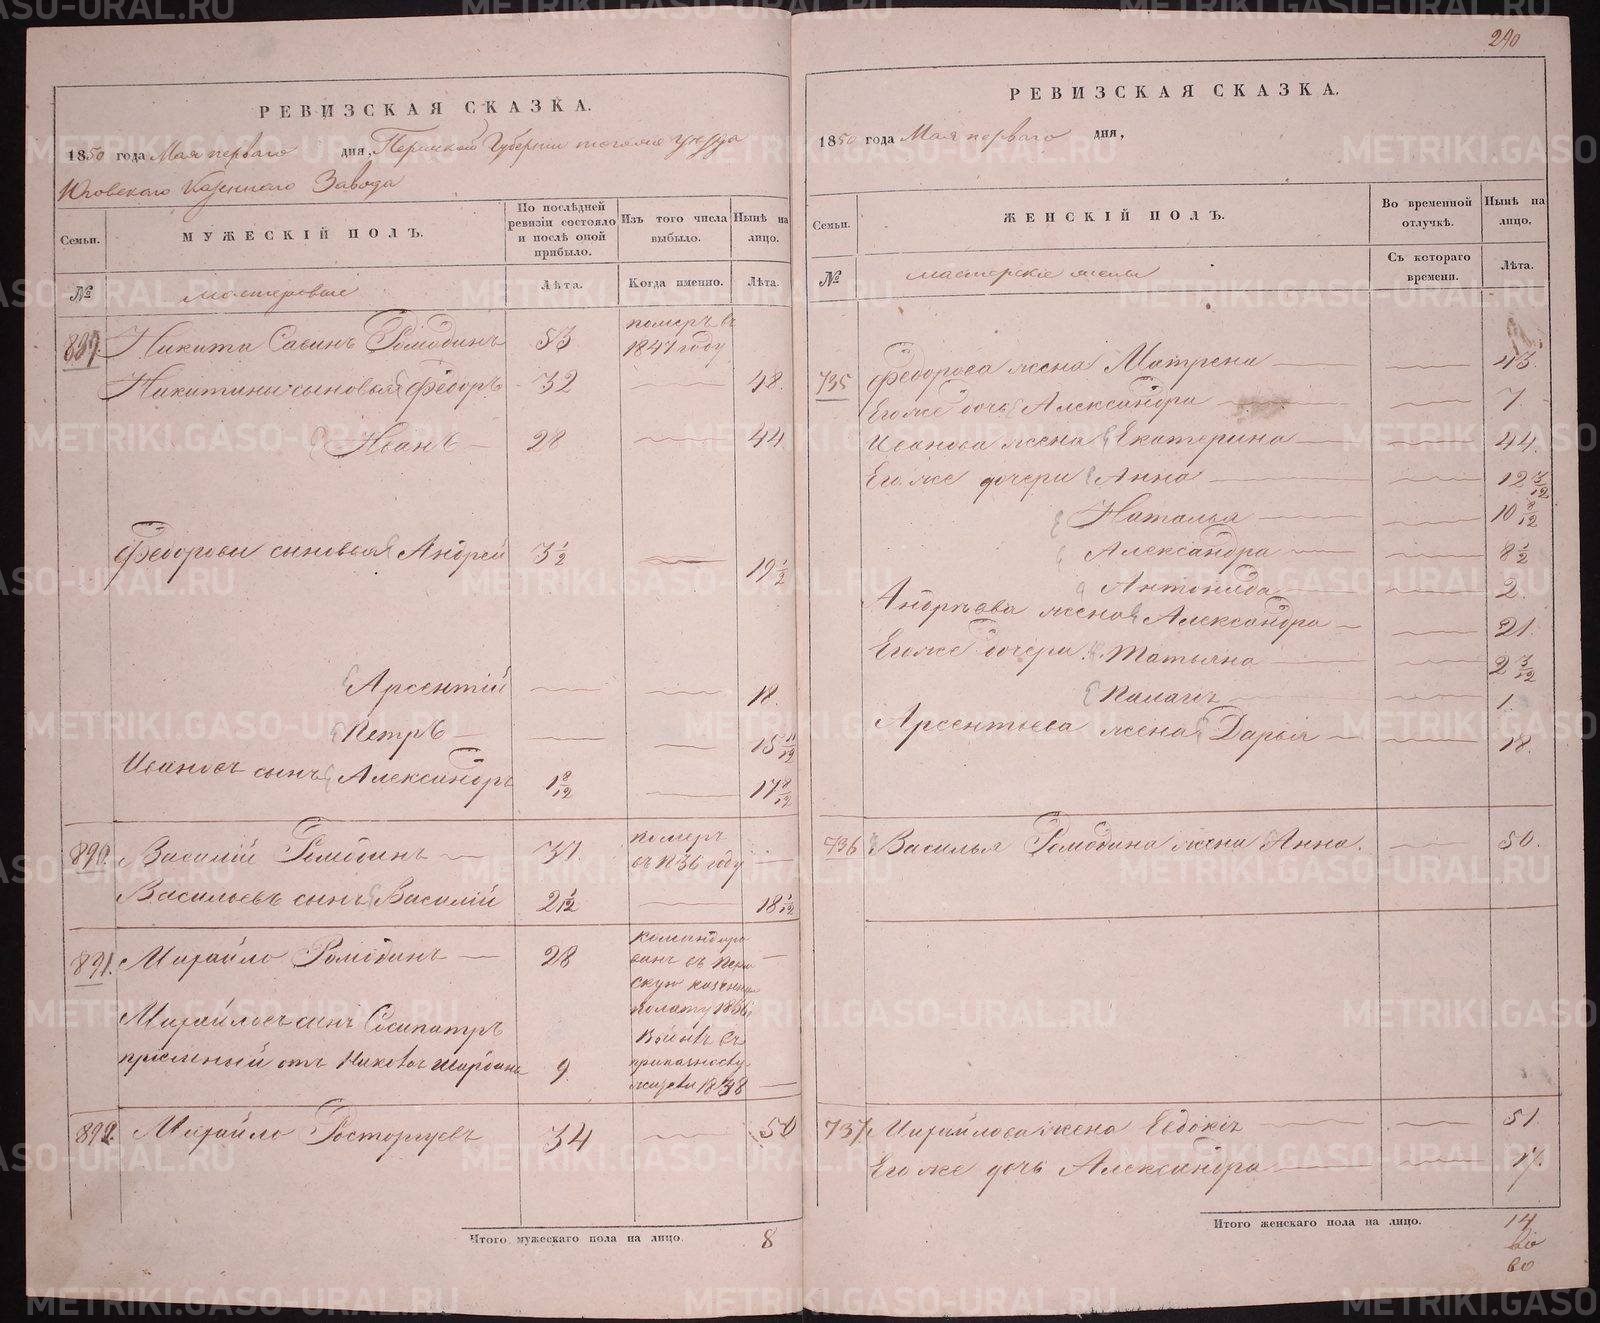 290
РЕВИЗСКАЯ СКАЗКА.
1850 года Мая перваго дня, Пермской Губернии тогоже уезда
Юговскаго Казеннаго Завода
Семьи.
МУЖЕСКІЙ ПОЛЪ.
По послѣдней ревизіи состояло и послѣ оной прибыло.
Изъ того числа выбыло.
Нынѣ на лицо.
№
мастеровые
Лѣта.
Когда именно.
Лѣта.
889. Никита Савинъ Ромодинъ 53 померъ въ 1847 году
Никитины сыновья Федоръ 32 48.
Иванъ 28 44.
Федоровы сыновья Андрей 3 1/2 19 1/2
Арсентій 18.
Петръ 15 11/12
Ивановъ сынъ Александръ 1 8/12 17 8/12
890. Василій Ромодинъ 37. померъ въ 1836 году
Васильевъ сынъ Василій 2 1/12 18 1/12
891. Михайло Ромодинъ 28 командированъ въ Пермскую казенную полату 1836
Михайловъ сынъ Сосипатръ
пріемный отъ 9. 1838
892. Михайло Расторгуевъ 34 50
Итого мужескаго пола на лицо. 8
РЕВИЗСКАЯ СКАЗКА.
1850 года Мая перваго дня,
Семьи.
ЖЕНСКІЙ ПОЛЪ.
Во временной отлучкѣ.
Нынѣ на лицо.
№
мастерскіе жены
Съ котораго времени.
Лѣта.
735 Федорова жена Матрена 43.
Егоже дочь Александра 7.
Иванова жена Екатерина 44.
Егоже дочери Анна 12 3/12
Наталья 10 8/12
Александра 8 1/2
Антонида 2.
Андрѣева жена Александра 21.
Егоже дочери Татьяна 2 3/12
Палагѣ 1
Арсентьева жена Дарья 18.
736 Василья Ромодина жена Анна. 50.
737. Михайлова жена Евдокіѣ 51
Егоже дочь Александра 17.
Итого женскаго пола на лицо. 14